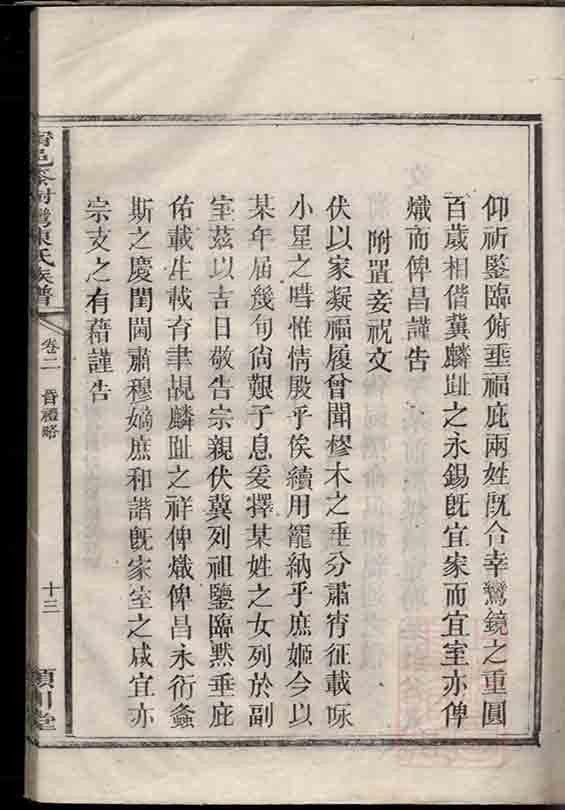 仰祈鑒臨俯垂福庇兩姓既合幸鸞鏡之重圓
百歲相偕冀麟趾之永錫旣宜家而宜室亦俾
熾而俾昌謹告
附置妾祝文
伏以家凝福履曾聞樛木之垂分肅宵征載咏
小星之嘒惟情殷乎俟續用寵納乎庶姬今以
某年屆幾旬尙艱子息爰擇某姓之女列於副
室茲以吉日敬告宗親伏冀列祖鑒臨黙垂庇
佑載生載育聿覩麟趾之祥俾熾俾昌永衍螽
斯之慶閨閫肅穆嫡庶和諧旣家室之咸宜亦
宗支之有藉謹告
陳氏族譜
卷二
昏禮略
十三
潁川堂